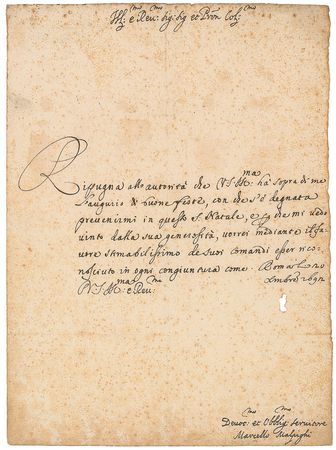 Ill.mo e Rev.mo Sig: Sig et Pron Col.mo
Ripugna all'autorità che V.S.Ill.ma hà sopra di me
l'augurio di buone feste, con che s'è degnata
prevenirmi in questo S. Natale, e che mi vedo
vinto dalla sua generosità, vorrei mediante il fa=
vore stimabilissimo de suoi comandi esser rico=
nosciuto in ogni congiuntura come. Roma li 20
Xmbre 1692
V.S.Ill.ma e Rev.ma
Devot.mo et Obblig.mo Servitore
Marcello Malpighi